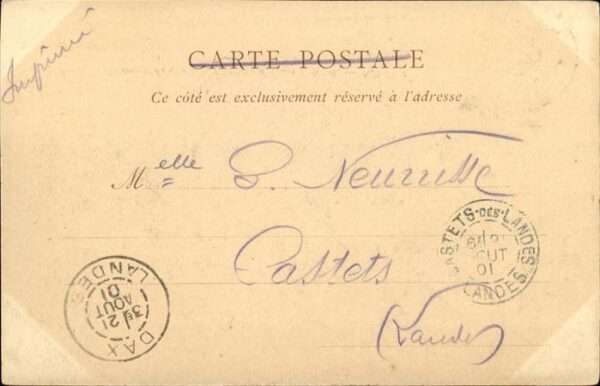 Imprimé
CARTE POSTALE
Ce côté est exclusivement réservé à l'adresse
Melle
Castets
(Landes)
CASTETS-DES-LANDES
21
AOUT
01
LANDES
DAX
LANDES
3E 21
AOUT
01